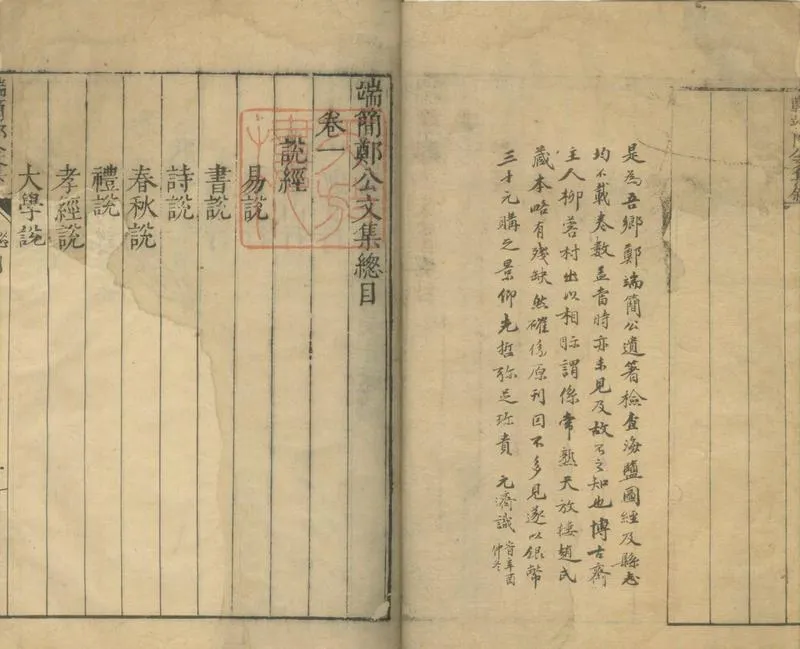 是為吾鄉鄭端簡公遺箸檢查海鹽圖經及縣志
均不載卷數孟當時亦未見及故不之知也博古齋
主人柳蓉村出以相眎謂係常熟天放樓趙氏
藏本略有殘缺然確係原刊因不多見遂以銀幣
三十元購之景仰先哲弥足珍貴 元濟識 時辛酉
仲冬
端簡鄭公文集總目
卷一
說經
易說
書說
詩說
春秋說
禮說
孝經說
大學說